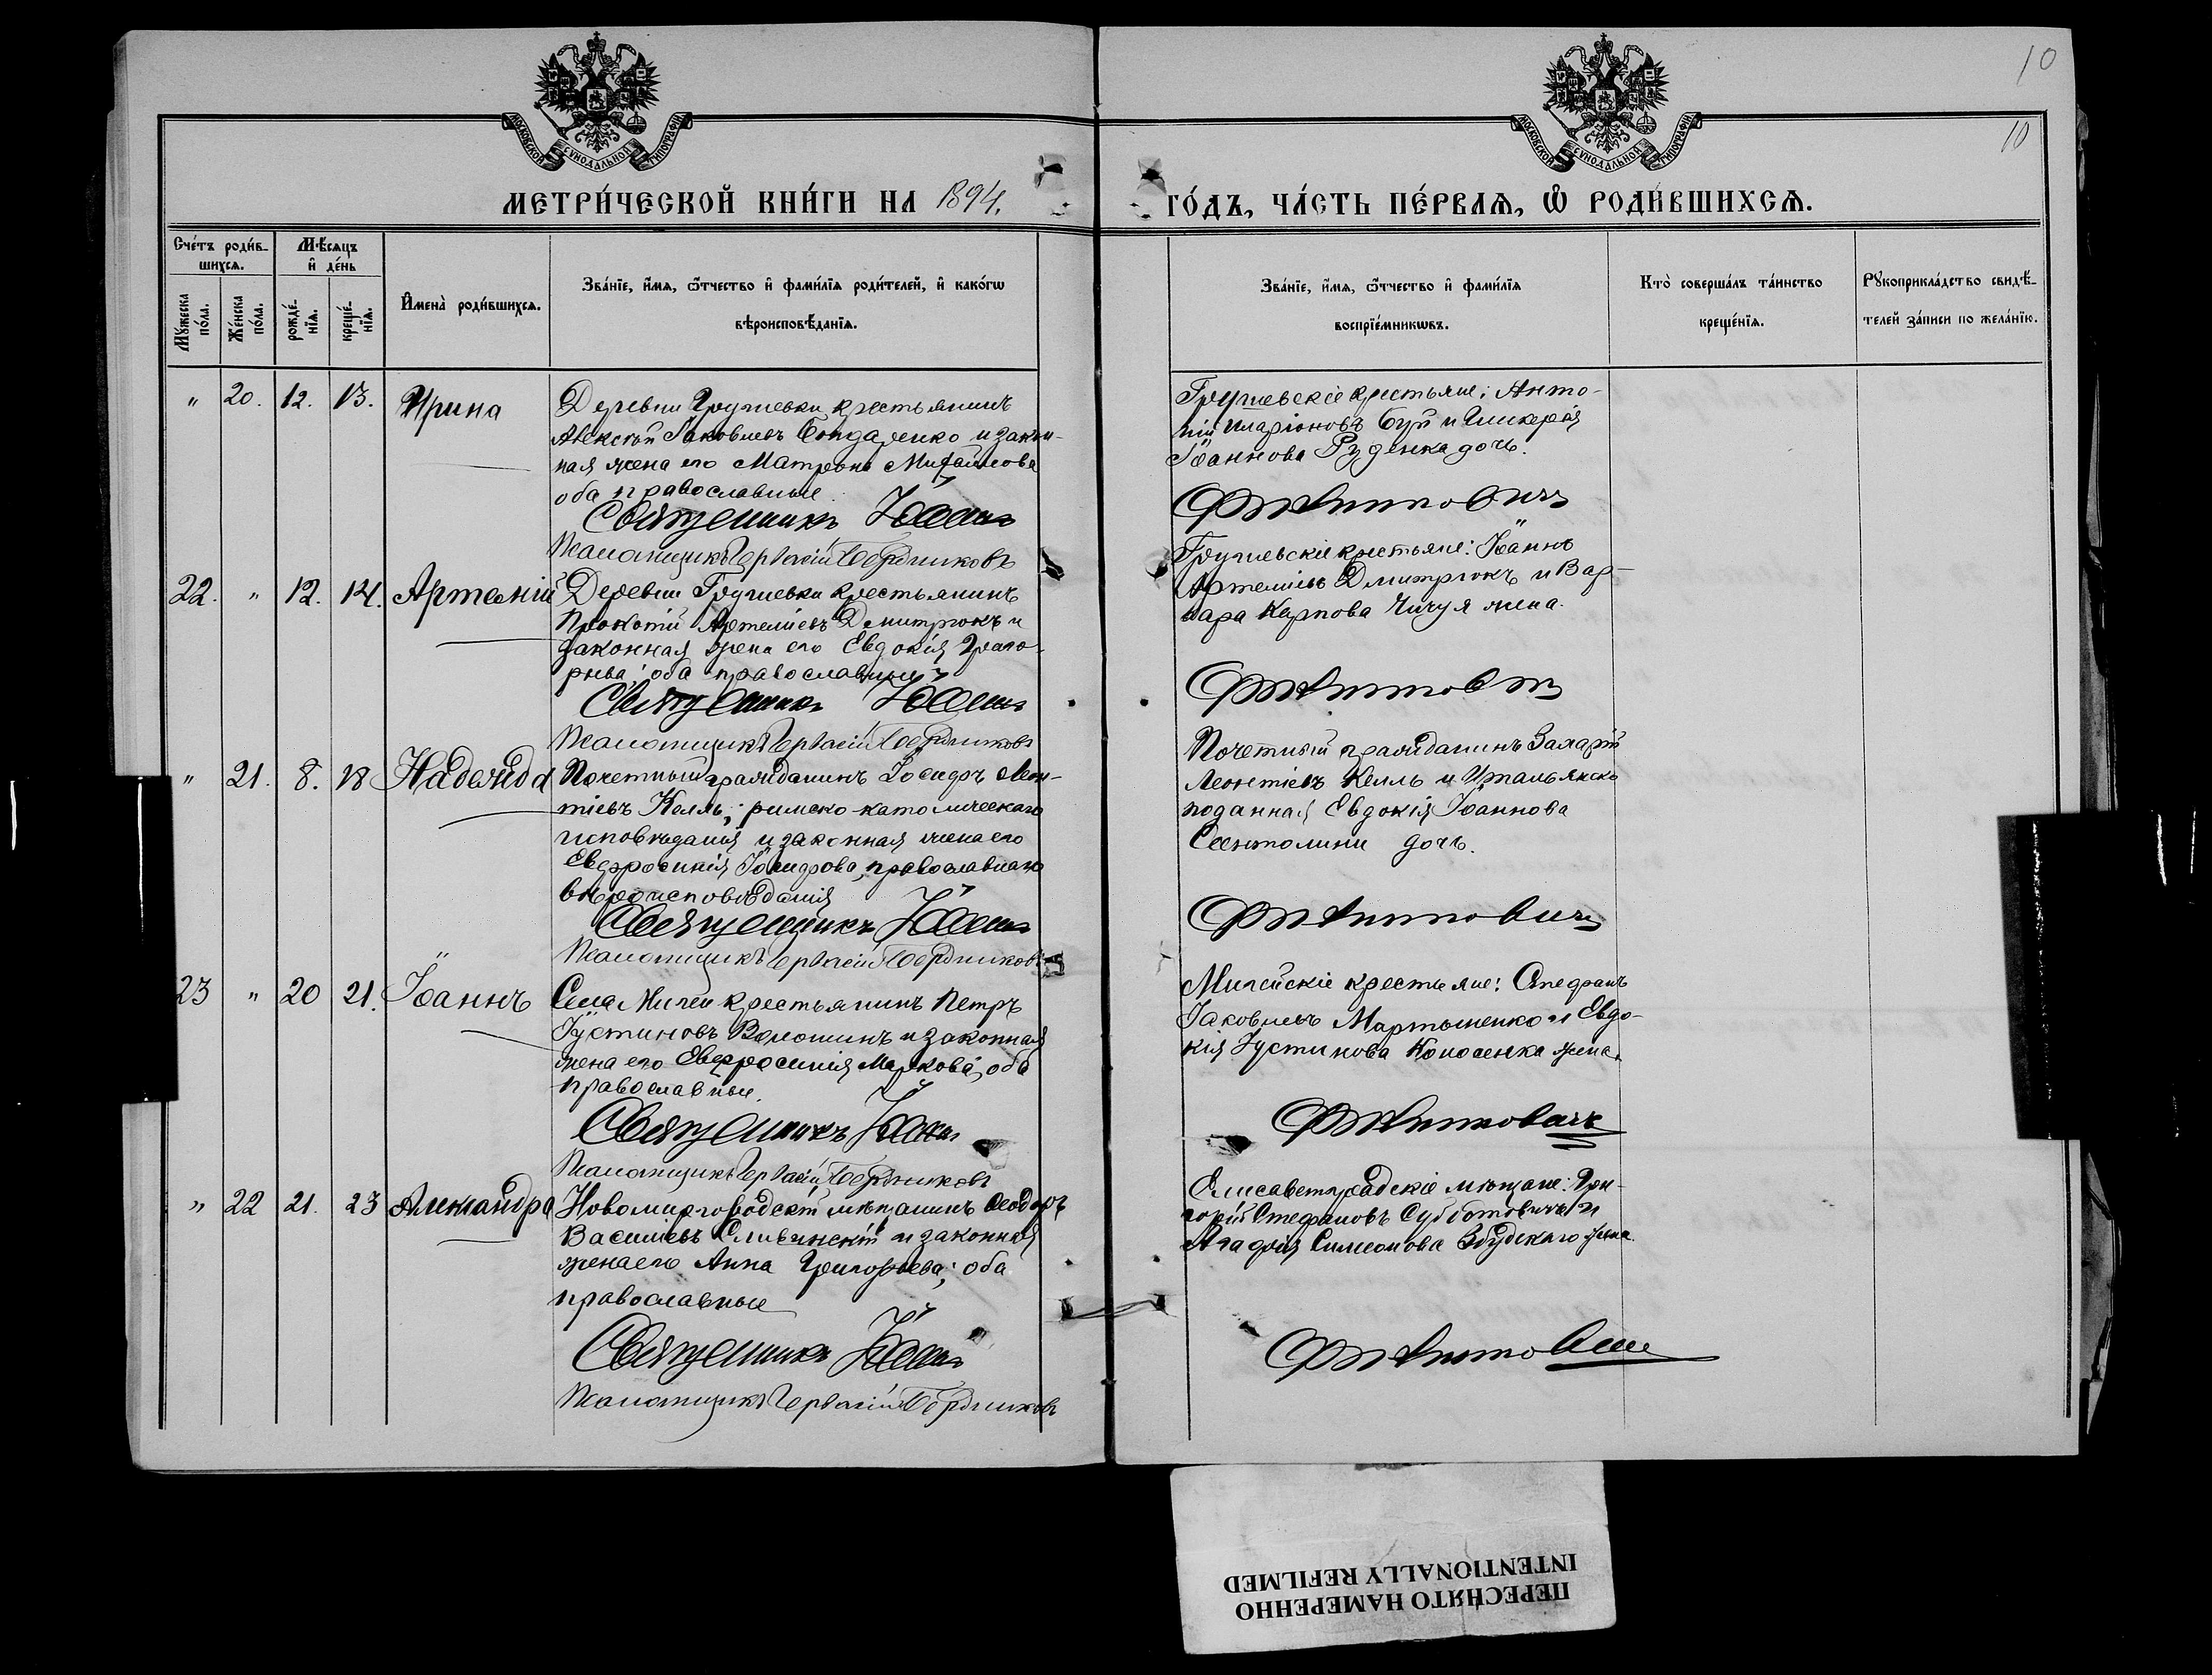 10
10
МОСКОВСКОЙ СѴНОДАЛЬНОЙ ТИПОГРАФІИ
МОСКОВСКОЙ СѴНОДАЛЬНОЙ ТИПОГРАФІИ
МЕТРИ́ЧЕСКОЙ КНИ́ГИ НА 1894.
ГО́ДЪ, ЧА́СТЬ ПЕ́РВАѦ, Ѡ҆ РОДИ́ВШИХСѦ.
Сче́тъ роди́в-
шихсѧ.
Мѣ́сѧцъ
и҆ де́нь
Мꙋ́жеска
по́ла.
Же́нска
по́ла.
рожде́-
нїѧ.
креще́-
нїѧ.
И҆мена̀ роди́вшихсѧ.
Зва́нїе, и҆́мѧ, ѻ҆́тчество и҆ фами́лїѧ роди́телей, и҆ како́гѡ
вѣроисповѣ́данїѧ.
Зва́нїе, и҆́мѧ, ѻ҆́тчество и҆ фами́лїѧ
воспрїе́мникѡвъ.
Кто̀ соверша́лъ та́инство
креще́нїѧ.
Рꙋкоприкла́дство свидѣ́-
телей за́писи по жела́нїю.
" 20. 12. 13. Ирина
Деревни Грушевки крестьянинъ
Алексѣй Іаковлевъ Бондаренко и закон-
ная жена его Матрона Михайлова
оба православные.
Священникъ Іоаннъ
Псаломщикъ Гервасій Бердниковъ
Грушевскіе крестьяне: Анто-
ній Иларіоновъ Буй и Гликерія
Іоаннова Руденка дочь.
22. " 12. 14. Артемій
Деревни Грушевки крестьянинъ
Прокопій Артеміевъ Дмитрюкъ и
законная жена его Евдокія Григо-
рьева; оба православные
Священникъ Іоаннъ
Псаломщикъ Гервасій Бердниковъ
Грушевскіе крестьяне: Іоаннъ
Артеміевъ Дмитрюкъ и Вар-
вара Карпова Чичуя жена.
" 21. 8. 18 Надежда
Почетный гражданинъ Іосифъ Леон-
тіевъ Келль; римско-католическаго
исповѣданія и законная жена его
Евфросинія Іосифова, православнаго
вѣроисповѣданія
Священникъ Іоаннъ
Псаломщикъ Гервасій Бердниковъ
Почетный гражданинъ Захарій
Леонтіевъ Келль и Итальянско
поданная Евдокія Іоаннова
дочь.
23 " 20 21. Іоаннъ
Села Мигеи крестьянинъ Петръ
Іустиновъ Волошинъ и законная
жена его Евфросинія Маркова, оба
православные.
Священникъ Іоаннъ
Псаломщикъ Гервасій Бердниковъ
Мигейскіе крестьяне: Стефанъ
Іаковлевъ Мартыненко и Евдо-
кія Іустинова жена.
" 22 21. 23 Александра
Новомиргородскій мѣщанинъ Ѳеодоръ
Василіевъ Сливинскій и законная
жена его Анна Григорьева; оба
православные
Священникъ Іоаннъ
Псаломщикъ Гервасій Бердниковъ
Елисаветградскіе мѣщане: Гри-
горій Стефановъ Субботовичъ и
Агафія Симеонова жена
ПЕРЕСНЯТО НАМЕРЕННО
INTENTIONALLY REFILMED